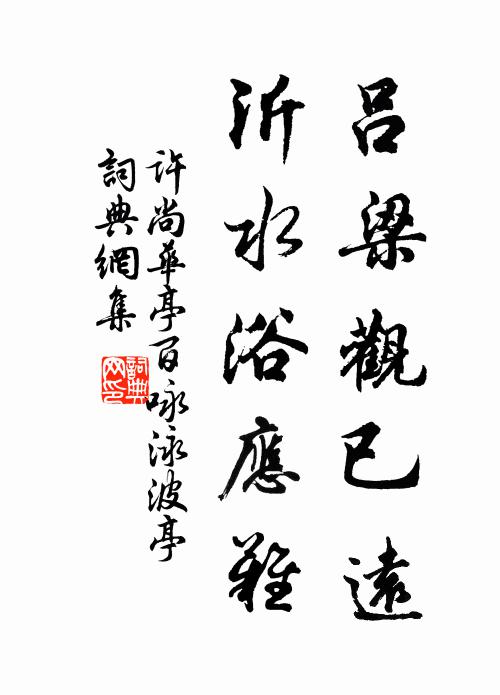 呂梁觀已遠
沂水浴應難
許尚華亭百咏泳波亭
詞典網集
詞典網印